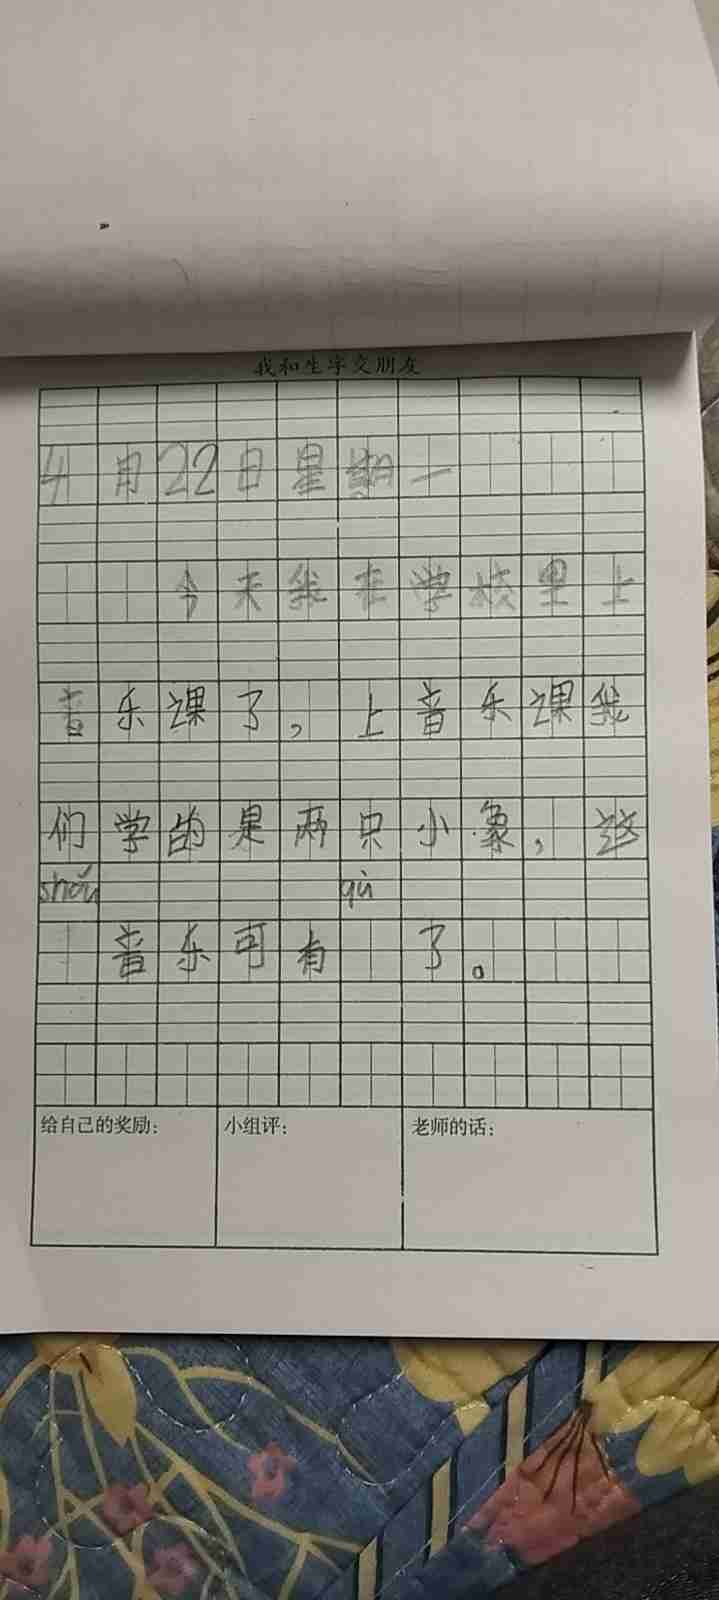 我和生字交朋友
4月22日星期一
今天我在学校里上
音乐课了，上音乐课我
们学的是两只小象，这
shǒu qù
音乐可有 了。
给自己的奖励： 小组评： 老师的话：